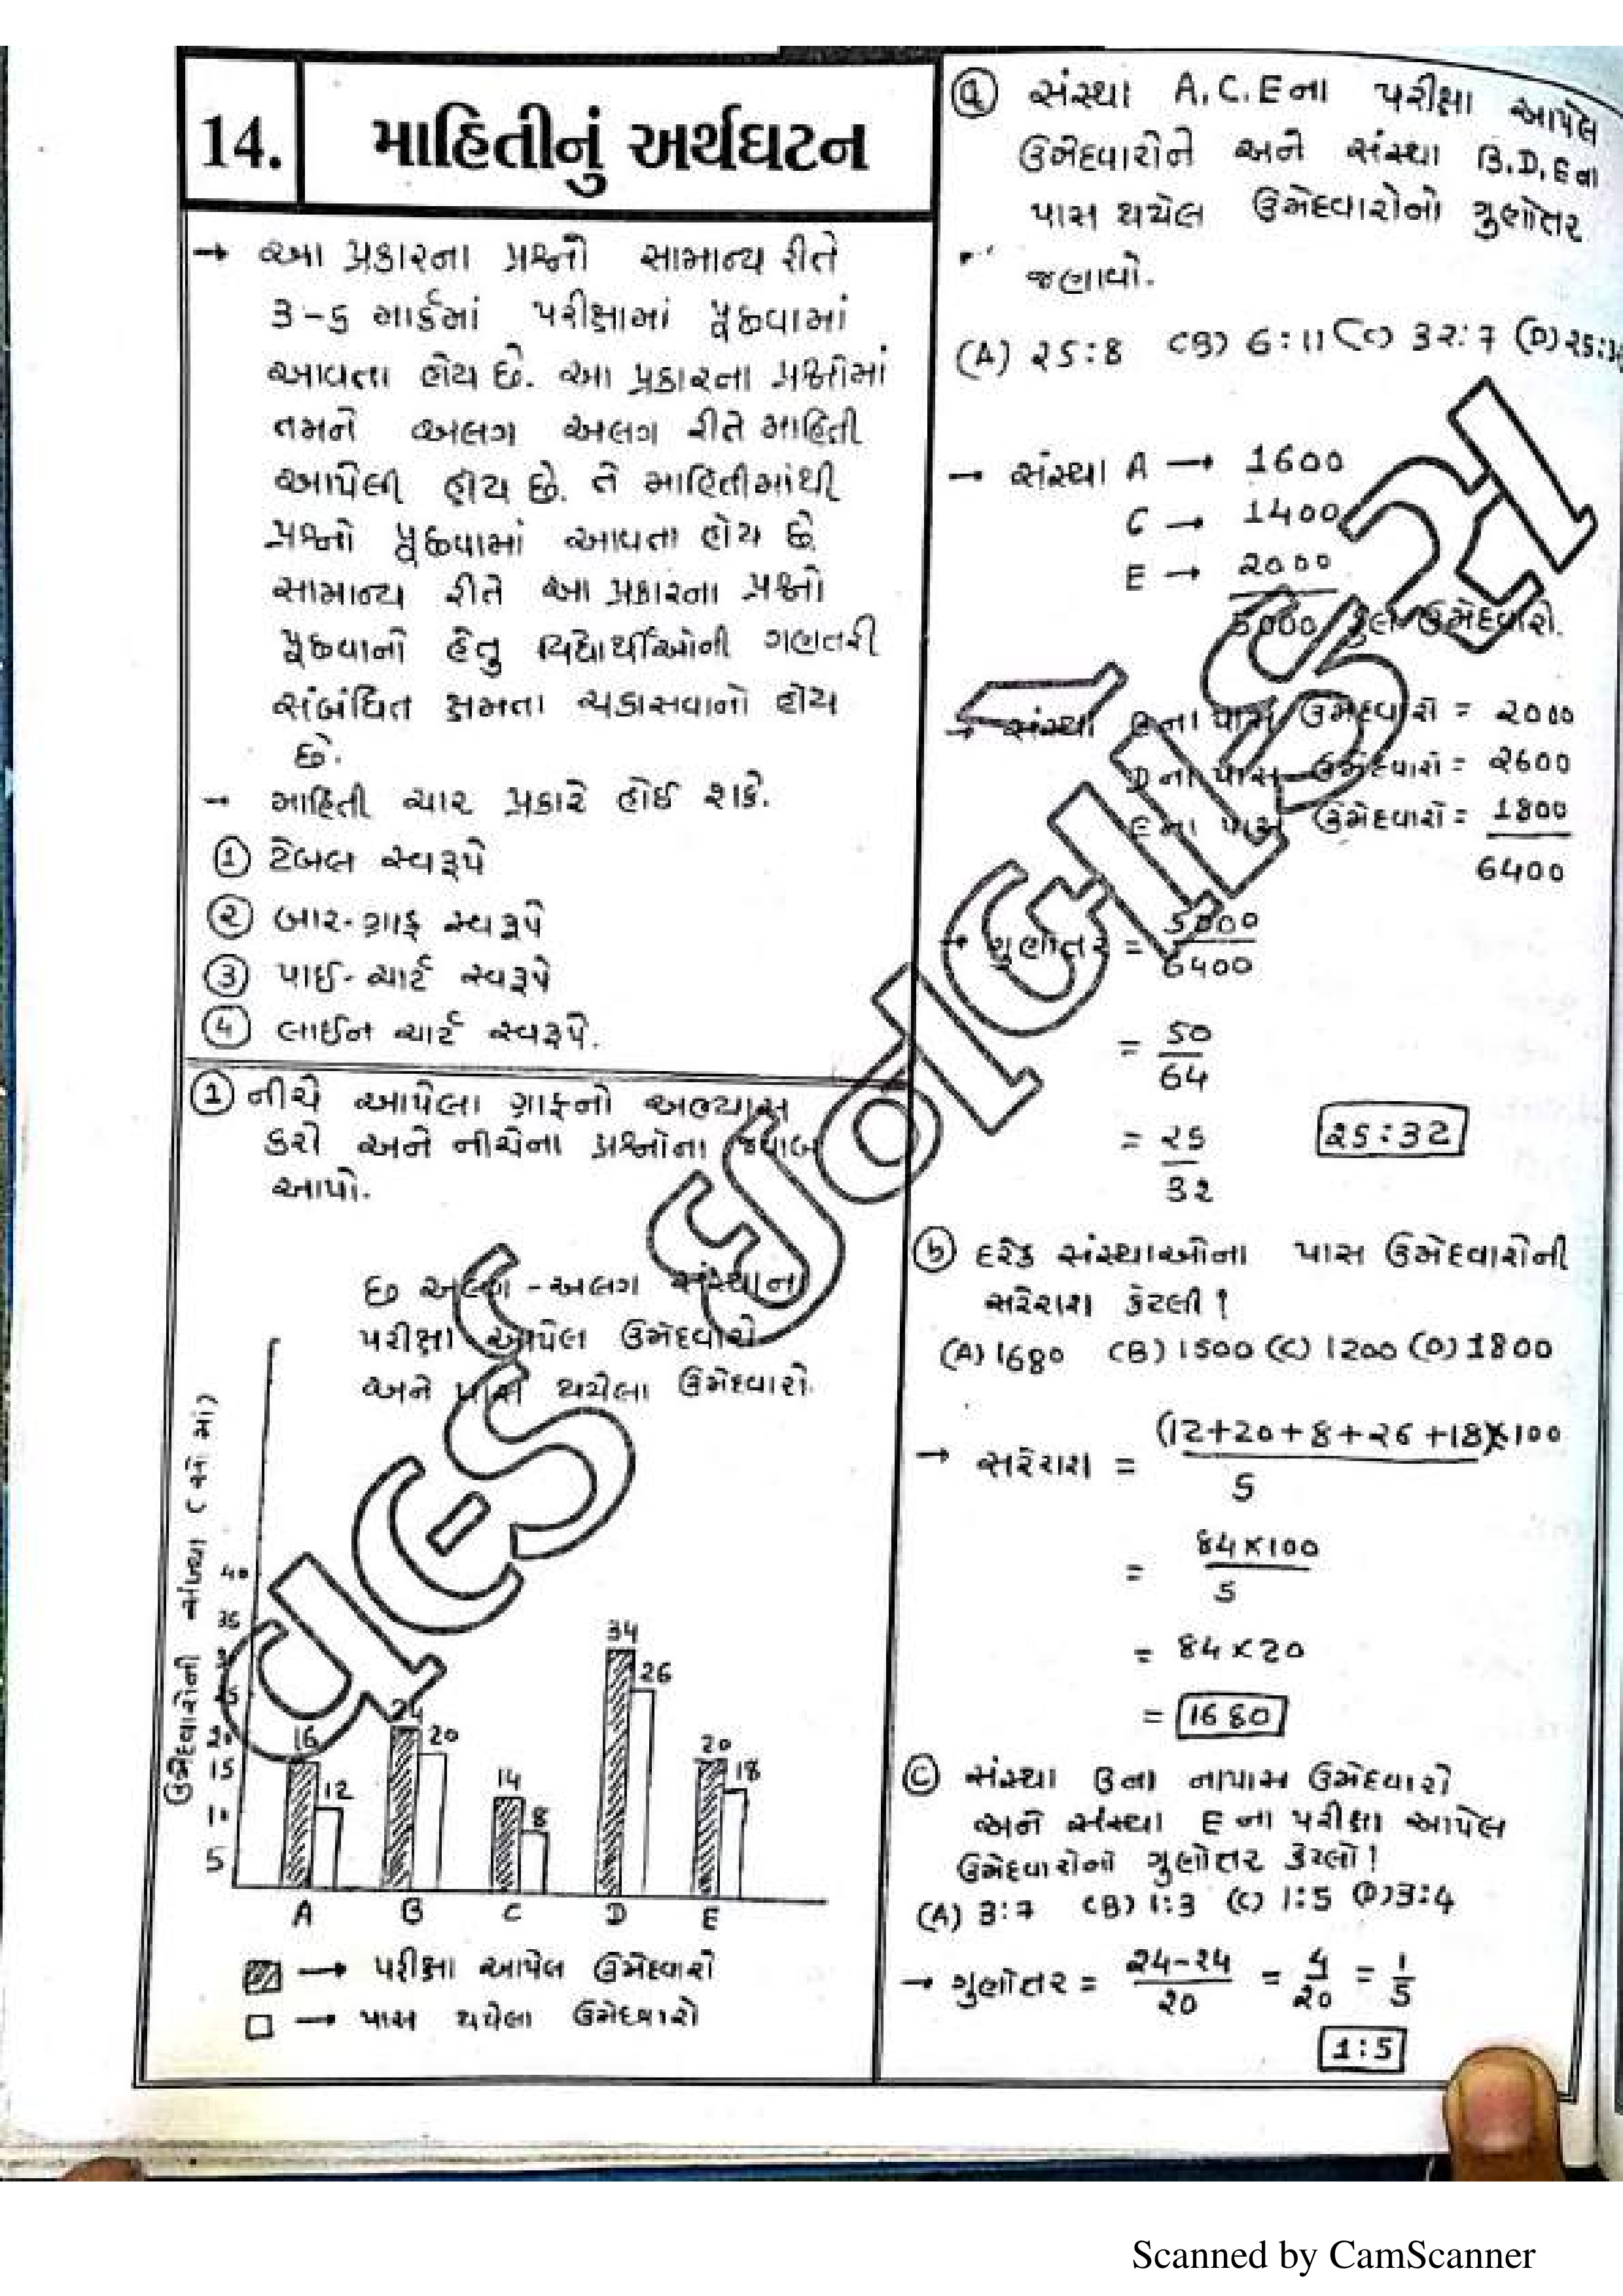 14.
માહિતીનું અર્થઘટન
→ આ પ્રકારના પ્રશ્નો સામાન્ય રીતે
૩-૬ માર્કમાં પરીક્ષામાં પૂછવામાં
આવતા હોય છે. આ પ્રકારના પ્રશ્નોમાં
તમને અલગ અલગ રીતે માહિતી
આપેલી હોય છે. તે માહિતીમાંથી
પ્રશ્નો પૂછવામાં આવતા હોય છે
સામાન્ય રીતે આ પ્રકારના પ્રશ્નો
પૂછવાનો હેતુ વિદ્યાર્થીઓની ગણતરી
સંબંધિત ક્ષમતા ચકાસવાનો હોય
છે.
- માહિતી ચાર પ્રકારે હોઈ શકે.
① ટેબલ સ્વરૂપે
② બાર-ગ્રાફ સ્વરૂપે
③ પાઈ-ચાર્ટ સ્વરૂપે
④ લાઈન ચાર્ટ સ્વરૂપે.
① નીચે આપેલા ગ્રાફનો અભ્યાસ
કરો અને નીચેના પ્રશ્નોના જવાબ
આપો.
છ અલગ-અલગ સંસ્થાના
પરીક્ષા આપેલ ઉમેદવારો
અને પાસ થયેલા ઉમેદવારો.
ઉમેદવારોની સંખ્યા (સો માં)
40
35
20
15
10
5
16 12
24 20
14 8
34 26
20 18
A B C D E
→ પરીક્ષા આપેલ ઉમેદવારો
→ પાસ થયેલા ઉમેદવારો
ⓐ સંસ્થા A.C.E ના પરીક્ષા આપેલ
ઉમેદવારોને અને સંસ્થા B.D.E ના
પાસ થયેલ ઉમેદવારોનો ગુણોતર
જણાવો.
(A) 25:8 (B) 6:11 (C) 32:7 (D) 25:32
→ સંસ્થા A → 1600
C → 1400
E → 2000
5000 કુલ ઉમેદવારો.
→ સંસ્થા Bના પાસ ઉમેદવારો = 2000
Dના પાસ ઉમેદવારો = 2600
Eના પાસ ઉમેદવારો = 1800
6400
→ ગુણોતર = 5000/6400
= 50/64
= 25/32 25:32
ⓑ દરેક સંસ્થાઓના પાસ ઉમેદવારોની
સરેરાશ કેટલી!
(A) 1680 (B) 1500 (C) 1200 (D) 1800
→ સરેરાશ = (12+20+8+26+18)×100/5
= 84×100/5
= 84×20
= 1680
ⓒ સંસ્થા Bના નાપાસ ઉમેદવારો
અને સંસ્થા E ના પરીક્ષા આપેલ
ઉમેદવારોનો ગુણોતર કેટલો!
(A) 3:7 (B) 1:3 (C) 1:5 (D) 3:4
→ ગુણોતર = 24-24/20 = 4/20 = 1/5
1:5
Scanned by CamScanner